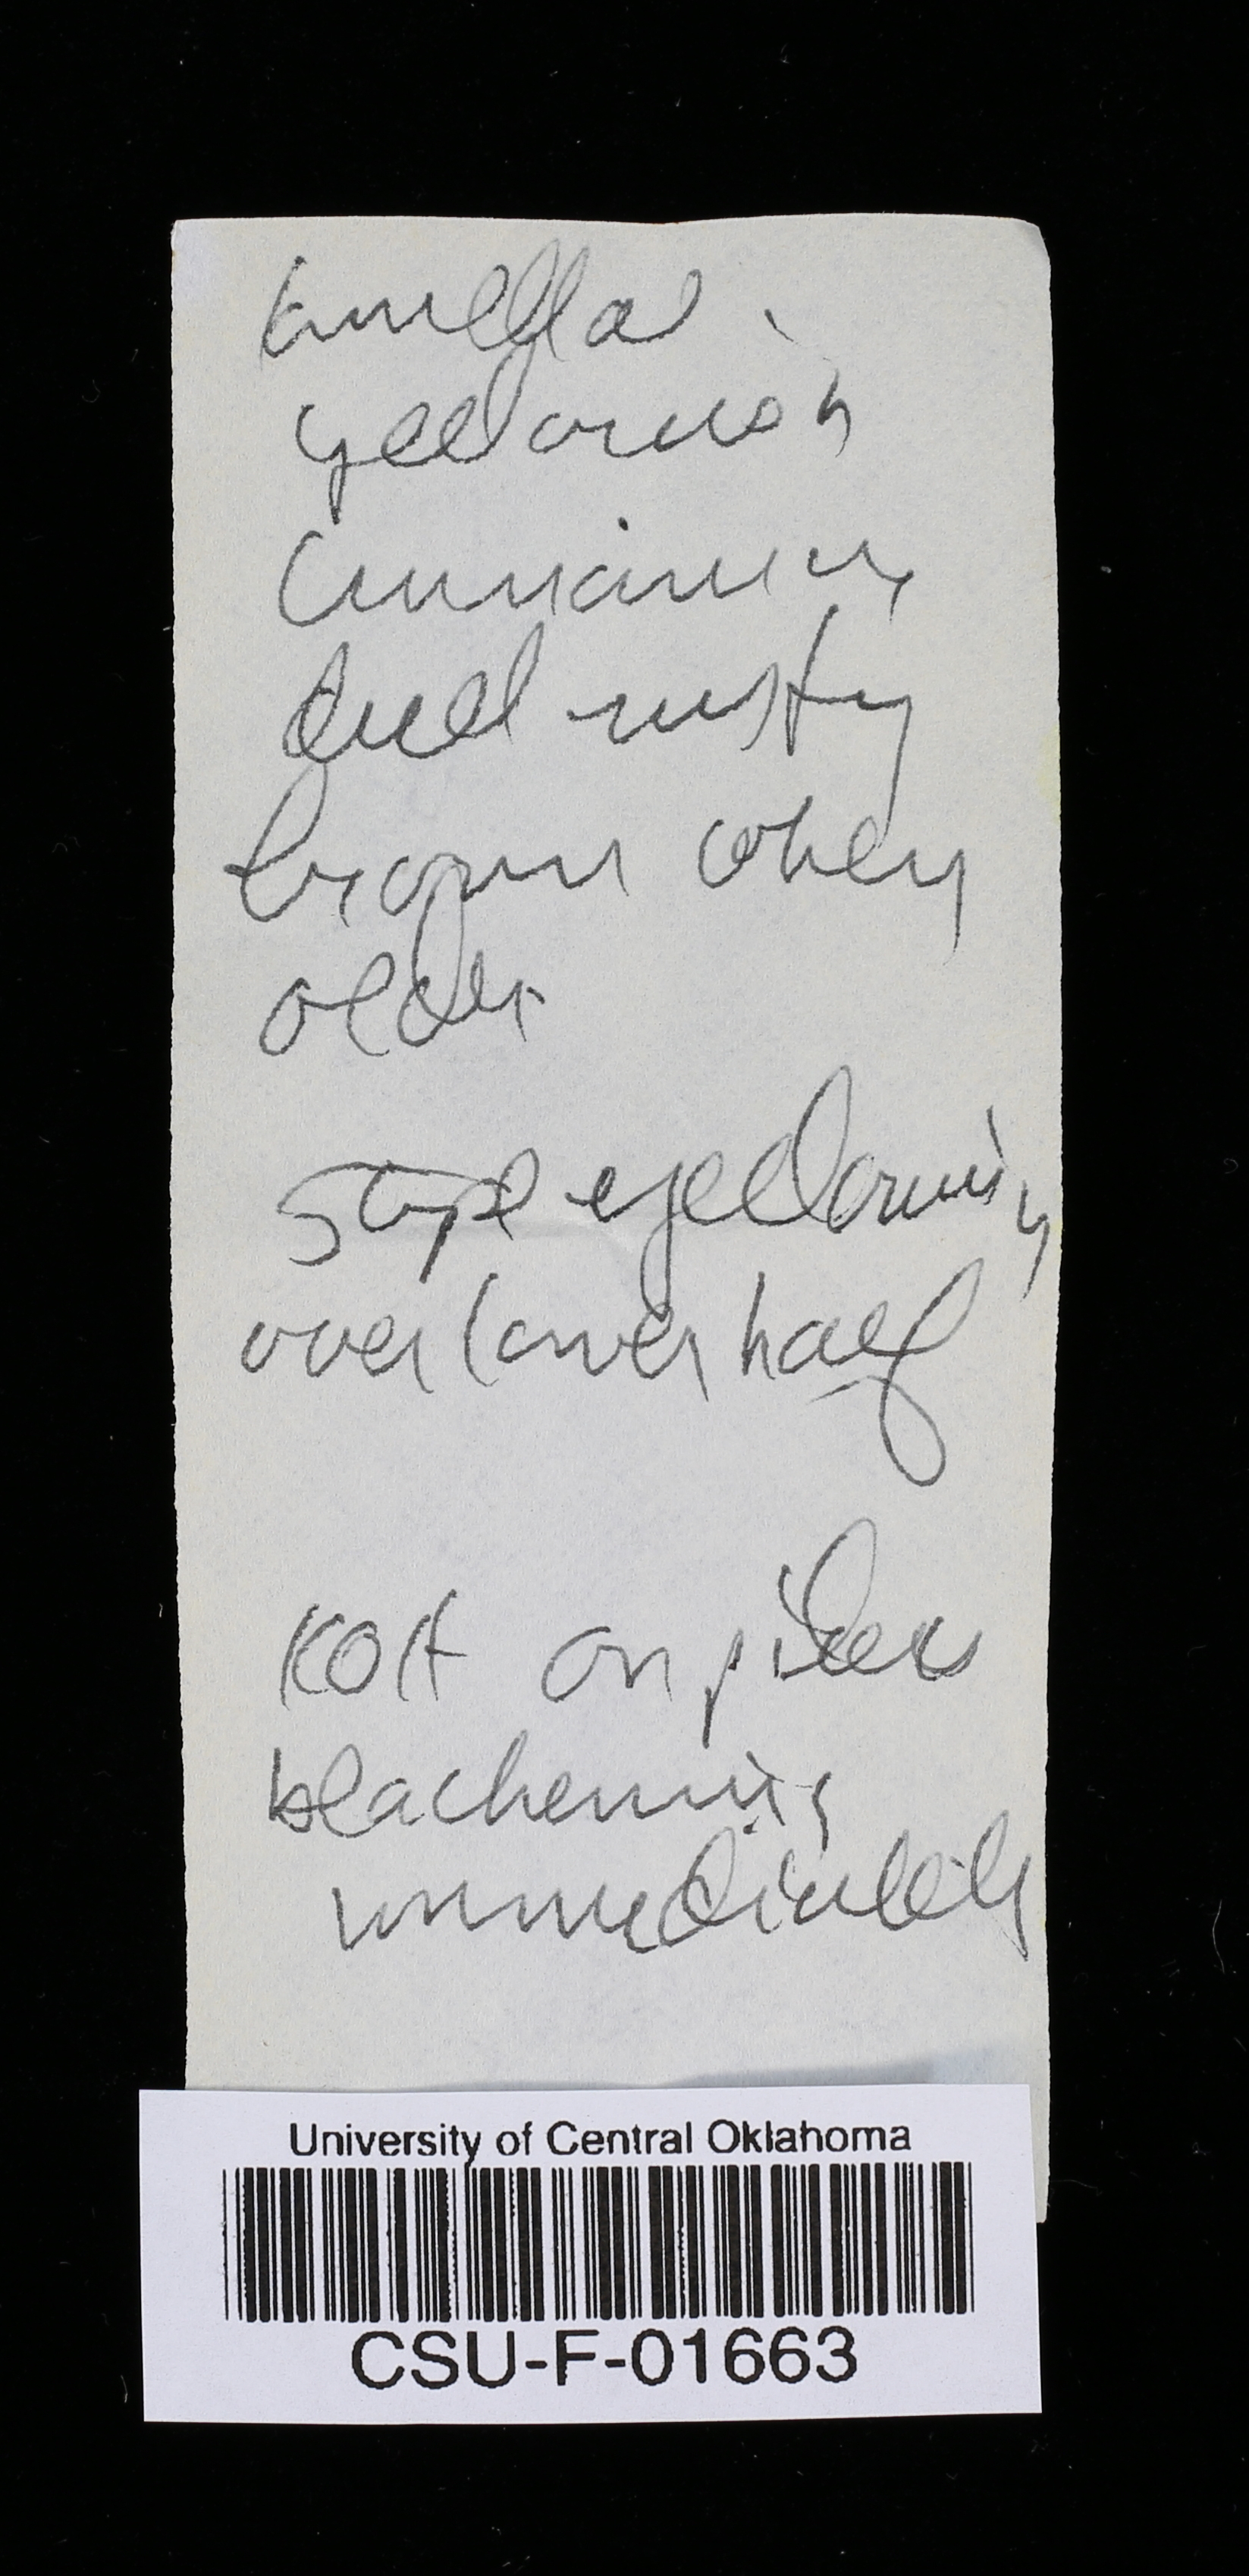 lamellae
yellowish
cinnamon,
dull rusty
brown when
older
stipe yellowish
over lower half
KOH on pileus
blackening
immediately
University of Central Oklahoma
CSU-F-01663